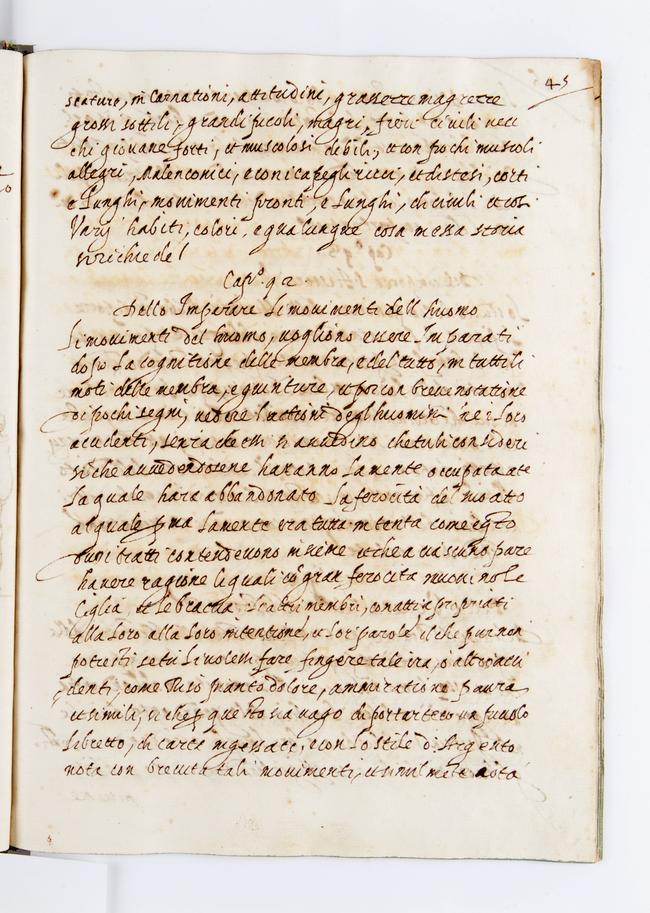 45
stature, in Carnationi, attitudini, grassezze magrezze
grossi sottili, grandi picoli, magri, fieri civili vec
chi giovane forti, et muscolosi debili, et con pochi muscoli
allegri, Malenconici, e con i capegli ricci, et distesi, corti
e Lunghi, movimenti pronti, e Lunghi, di civili et cosi
Varij habiti, colori, e qualunque cosa messa storia
si richiede l
Capo. 92
Dello Imparare Li movimenti dell huomo
Li movimenti del huomo, vogliono essere Imparati
dopo La cognitione delle membra, e del tutto, in tutti li
moti delle membra, e giunture, et poi con breve notatione
di pochi segni, vedere l'attioni degl huomini ne i Loco
accidenti, senza che essi si avvedino che tu li consideri
si che avvedendosene haranno La mente occupata a te
La quale hara abbandonato La ferocità del suo atto
al quale prima La mente era tutta intenta come e qto
duoi irati contendevono insieme et che a ciascuno pare
havere ragione le quali cō gran ferocita muovino le
Ciglia et le braccia et altri membri, con atti apropriati
alla Loro alla Loro intentione, et Lor parole il che far non
potresti se tu Li volessi fare fingere tale ira, o altro acci
denti, come Riso pianto dolore, ammiratione paura
et simili, si che per questo sia vago di portar teco un picolo
Libretto, di carte ingessate, e con Lo stile d'Argento
nota con brevità tali movimenti, et similmēte nota